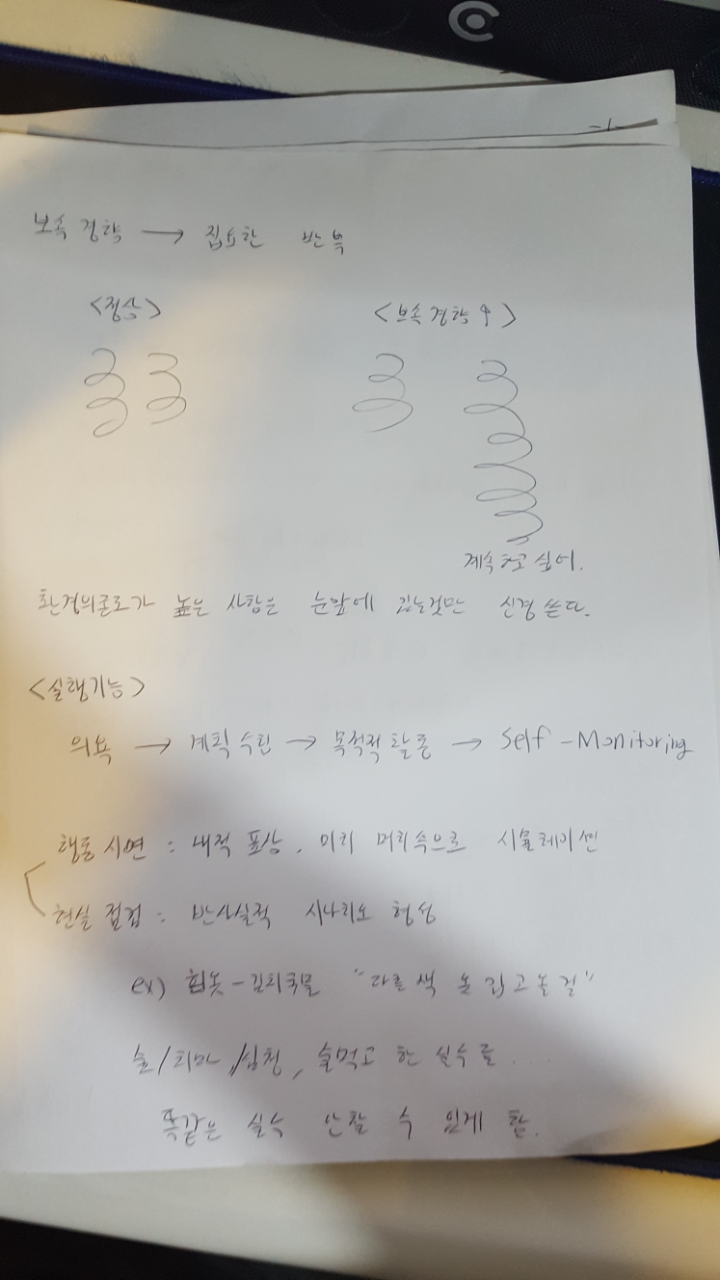 보속 경향 → 집요한 반복
<정상> <보속 경향↑>
계속하고 싶어.
환경의존도가 높은 사람은 눈앞에 있는것만 신경 쓴다.
<실행기능>
의욕 → 계획 수립 → 목적적 활동 → Self-Monitoring
행동 시연 : 내적 표상, 미리 머리속으로 시뮬레이션
현실 점검 : 반사실적 시나리오 형성
ex) 흰옷-김치국물 "다른 색 옷 입고올걸"
술/치마/심청, 술먹고 한 실수를 ....
똑같은 실수 안할 수 있게 함.